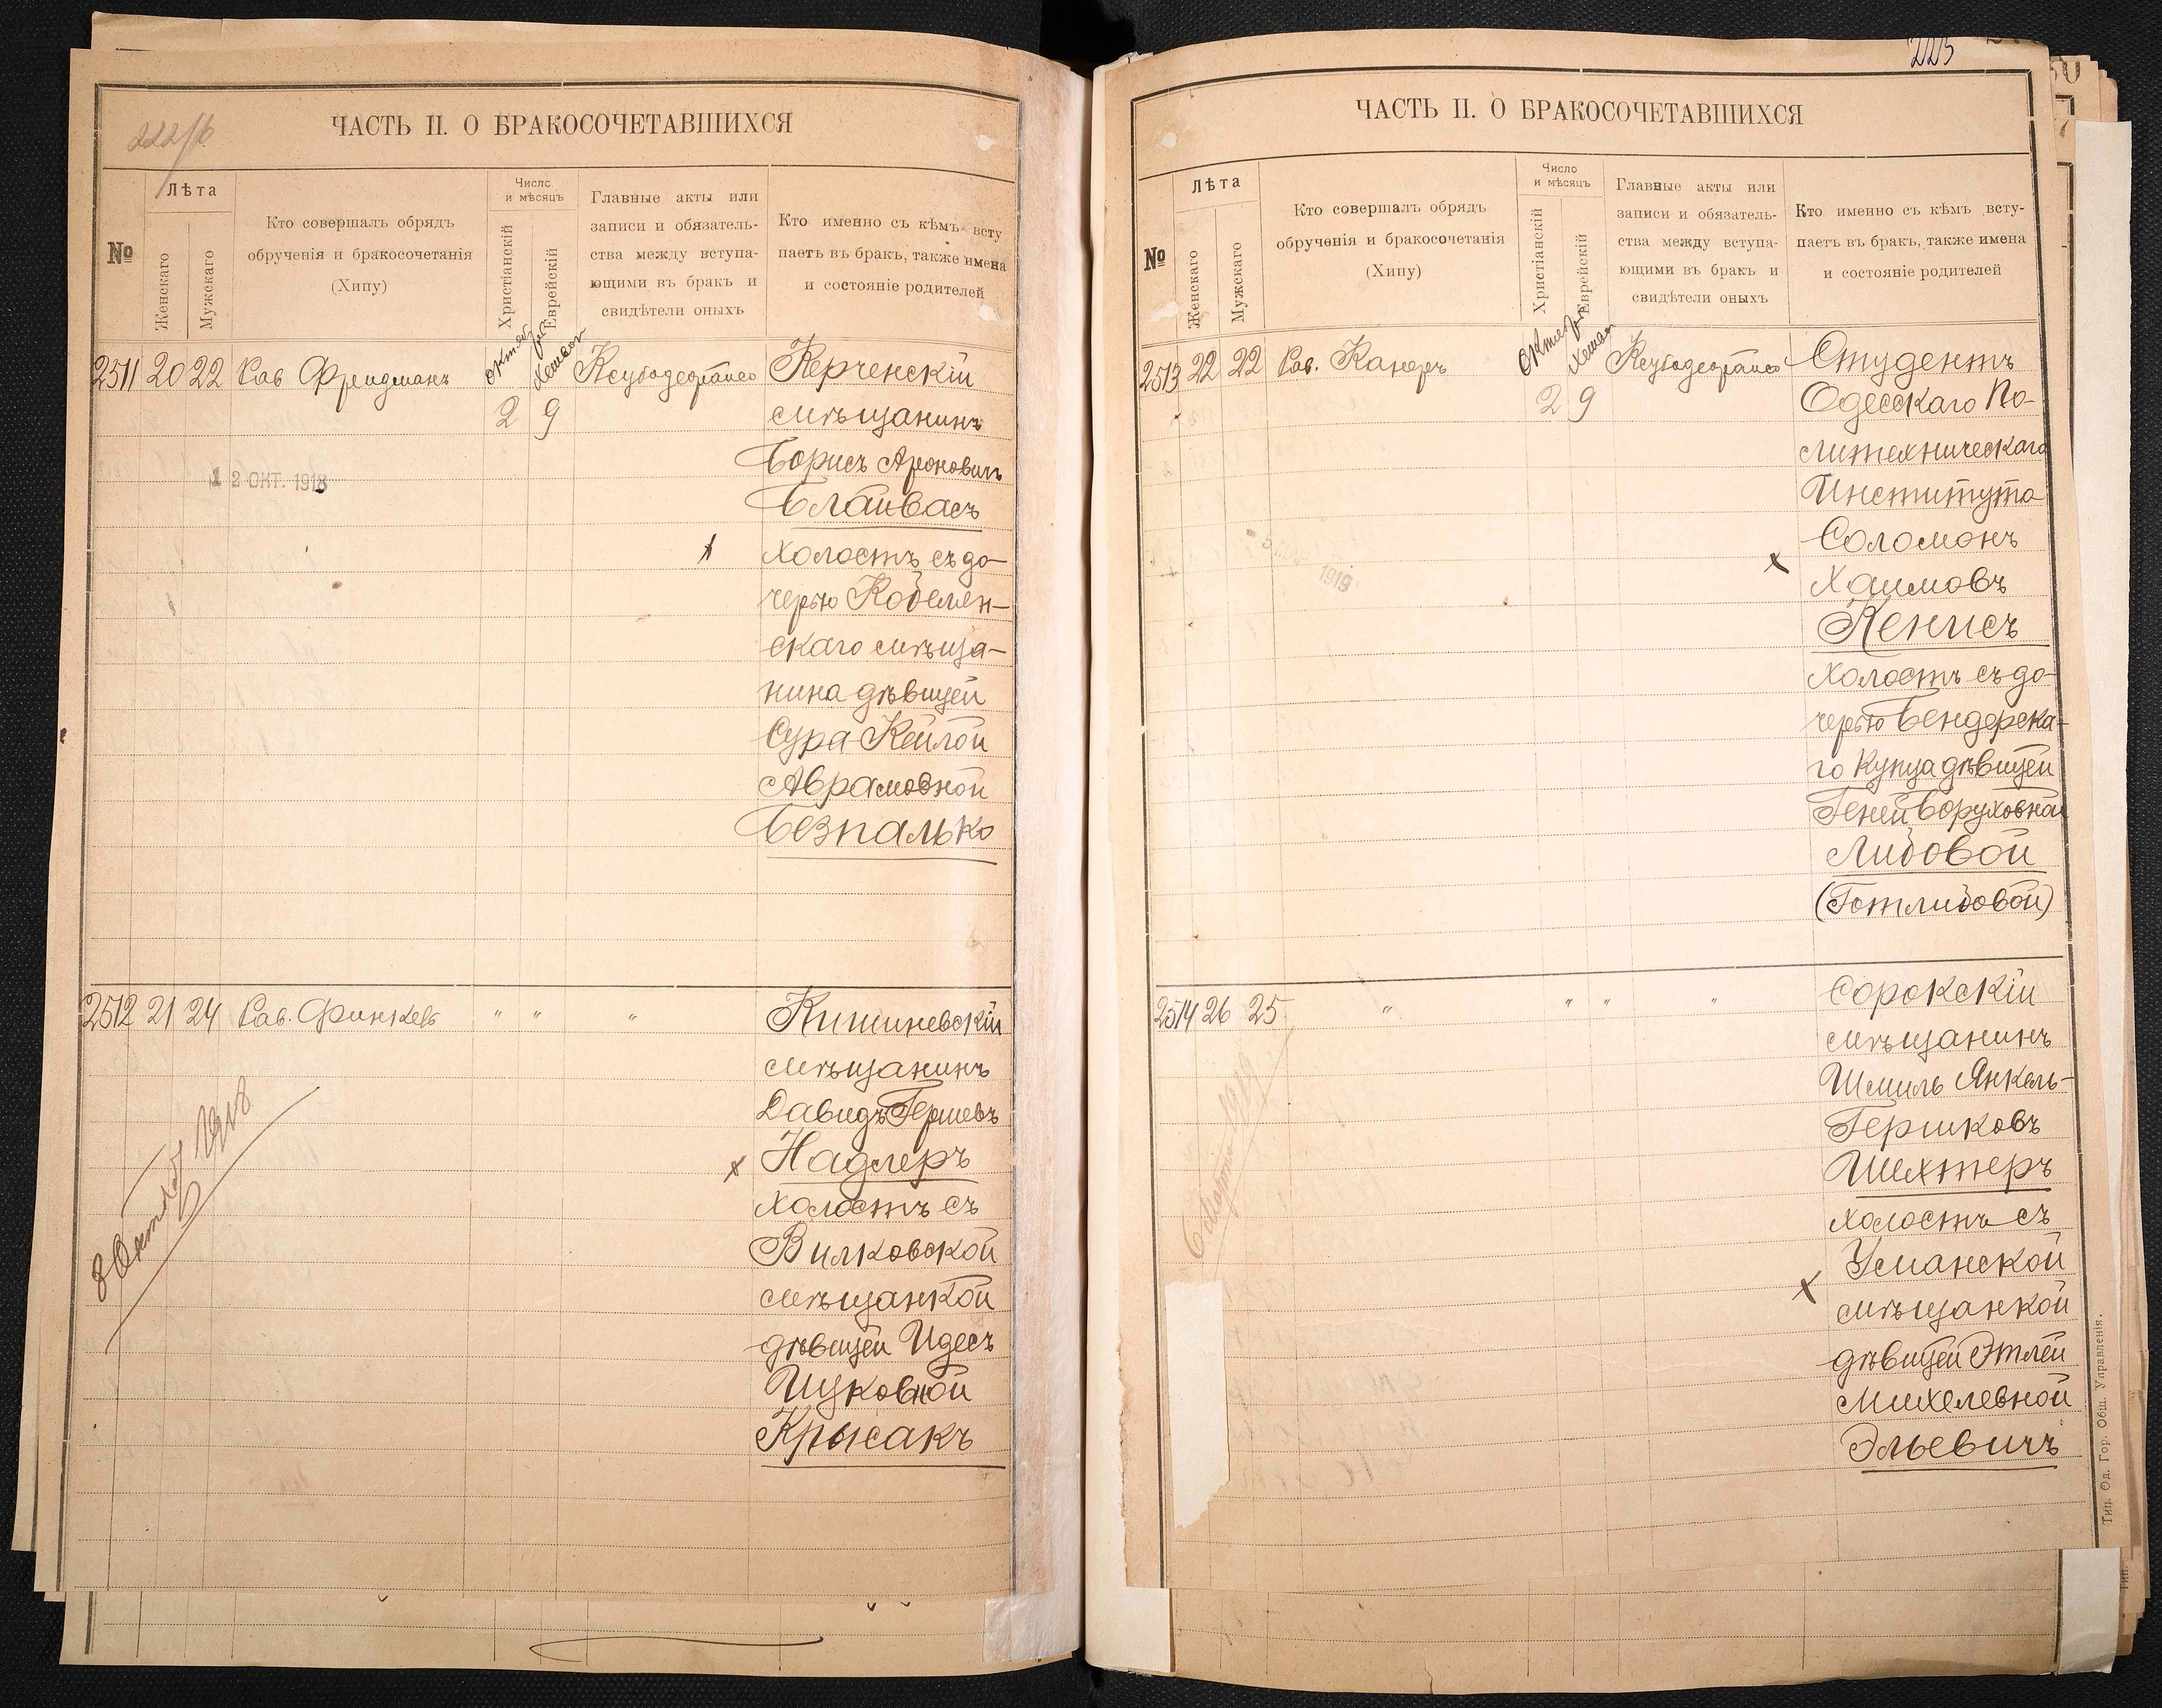 222/б
ЧАСТЬ II. О БРАКОСОЧЕТАВШИХСЯ
№
Лѣта
Женскаго
Мужскаго
Кто совершалъ обрядъ
обрученія и бракосочетанія
(Хипу)
Число
и мѣсяцъ
Христіанскій
Еврейскій
Главные акты или
записи и обязатель-
ства между вступа-
ющими въ бракъ и
свидѣтели оныхъ
Кто именно съ кѣмъ всту
паетъ въ бракъ, также имена
и состояніе родителей
2511 20 22 Рав Фридманъ Октября Хешвон Ксубодеорайсо Керченскій
2 9 мѣщанинъ
Борисъ Ароновичъ
12 ОКТ. 1918
Блайвасъ
Холостъ съ до-
черью Кобеляк-
скаго мѣща-
нина дѣвицей
Сура-Кейлой
Аврамовной
Безпалько
2512 21 24 Рав. Финкель " " " Кишиневскій
мѣщанинъ
Давидъ Гершевъ
Надлеръ
холостъ съ
Вилковской
мѣщанкой
дѣвицей Идесъ
Ицковной
Крысакъ
8 Октяб 1918
223
ЧАСТЬ II. О БРАКОСОЧЕТАВШИХСЯ
№
Лѣта
Женскаго
Мужскаго
Кто совершалъ обрядъ
обрученія и бракосочетанія
(Хипу)
Число
и мѣсяцъ
Христіанскій
Еврейскій
Главные акты или
записи и обязатель-
ства между вступа-
ющими въ бракъ и
свидѣтели оныхъ
Кто именно съ кѣмъ всту-
паетъ въ бракъ, также имена
и состояніе родителей
2513 22 22 Рав. Канеръ Октября Хешвон Ксубодеорайсо Студентъ
2 9 Одесскаго По-
литехническаго
Института
Соломонъ
1919
Хаимовъ
Кенисъ
холостъ съ до-
черью Бендерска-
го Купца дѣвицей
Геней Боруховной
Либовой
(Готлибовой)
2514 26 25 " " " " Сорокскій
мѣщанинъ
Шмиль Янкель-
Гершковъ
Шехтеръ
холостъ съ
Уманской
мѣщанкой
дѣвицей Этлей
Михелевной
Эльевичъ
6 Марта 1919
Тип. Од. Гор. Общ. Управленія.